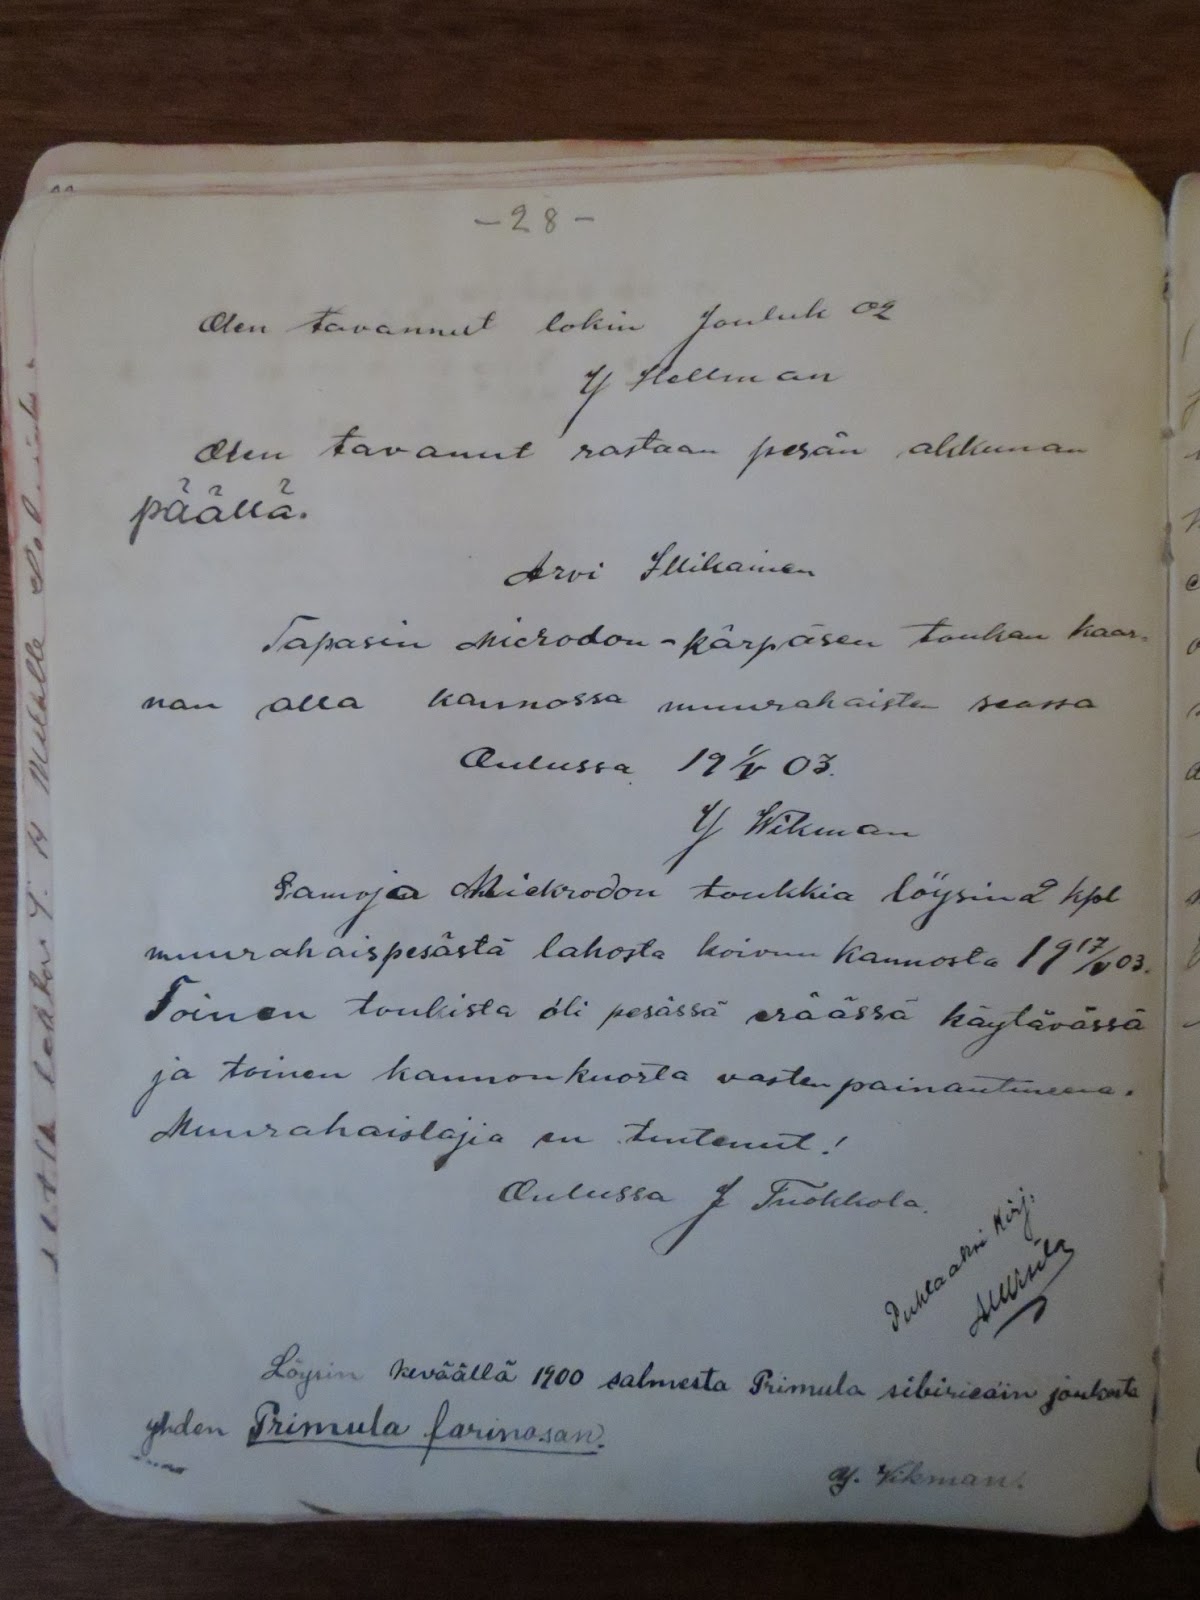 - 28 -
Olen tavannut lokin Jouluk 02
Y Hellman
Olen tavanut rastaan pesän akkunan
päällä.
Arvi
Tapasin Microdon-kärpäsen toukan kaar-
nan alla kannossa muurahaisten seassa
Oulussa 19 1/V 03.
Y Wikman
Samoja Mickrodon toukkia löysin 2 kpl
muurahaispesästä lahosta koivun kannosta 19 17/V 03.
Toinen toukista oli pesässä eräässä käytävässä
ja toinen kannonkuorta vasten painautuneena.
Muurahaislajia en tuntenut!
Oulussa J Tuokkola.
Puhtaaksi kirj.
Löysin keväällä 1900 salmesta Primula sibiricain joukosta
yhden Primula farinosan.
Y. Vikman.